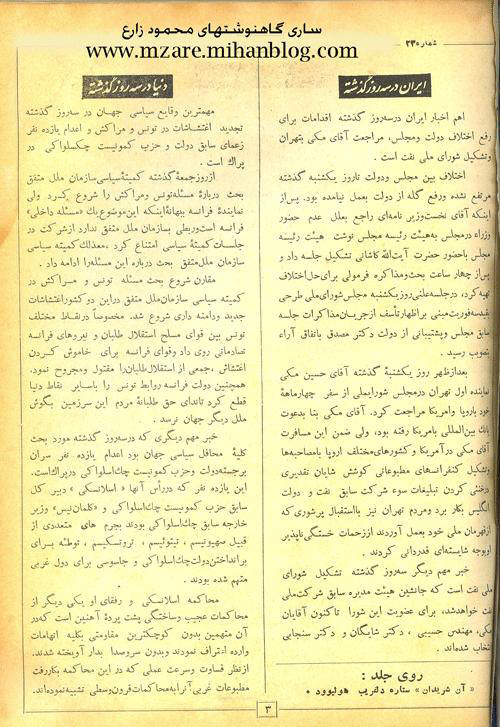 ساری گاهنوشتهای محمود زارع
www.mzare.mihanblog.com
شماره ۲۳
ایران درسه روز گذشته
اهم اخبار ایران درسه‌روز گذشته اقدامات برای
رفع اختلاف دولت ومجلس، مراجعت آقای مکی بتهران
وتشکیل شورای ملی نفت است .
اختلاف بین مجلس ودولت تاروز یکشنبه گذشته
مرتفع نشده ورفع گله از دولت بعمل نیامده بود. پس‌از
اینکه آقای نخست‌وزیر نامه‌ای راجع بعلل عدم حضور
وزراء درمجلس به‌هیئت رئیسه مجلس نوشت هیئت رئیسه
مجلس باحضور حضرت آیت‌الله کاشانی تشکیل جلسه داد و
پس‌از چهار ساعت بحث‌ومذاکره فرمولی برای‌حل‌اختلاف
تهیه کرد، درجلسه علنی‌روز یکشنبه مجلس‌شورای‌ملی طرحی
بقیدسه‌فوریت‌مبنی براظهارتأسف ازجریان‌مذاکرات جلسه
سابق مجلس وپشتیبانی از دولت دکتر مصدق باتفاق آراء
بتصویب رسید .
بعدازظهر روز یکشنبهٔ گذشته آقای حسین مکی
نماینده اول تهران درمجلس شورایملی از سفر چهارماههٔ
خود باروپا وامریکا مراجعت کرد. آقای مکی بنا بدعوت
بانك بین‌المللی بامریکا رفته بود، ولی ضمن این مسافرت
آقای مکی درآمریکا و کشورهای‌مختلف اروپا بامصاحبه‌ها
وتشکیل کنفرانسهای مطبوعاتی کوشش شایان تقدیری
درخنثی کردن تبلیغات سوء شرکت سابق نفت و دولت
انگلیس بکار برد ومردم تهران نیز بااستقبال پرشوری که
ازقهرمان ملی خود بعمل آوردند اززحمات خستگی‌ناپذیر
اوبوجه شایسته‌ای قدردانی کردند .
خبر مهم دیگر سه‌روز گذشته تشکیل شورای
ملی نفت است که جانشین هیئت مدیره سابق شرکت‌ملی
نفت خواهدشد، برای عضویت این شورا تاکنون آقایان
مکی، مهندس حسیبی ، دکتر شایگان و دکتر سنجابی
انتخاب شده‌اند .
روی جلد :
« آن شریدان » ستاره دلفریب هولیوود
دنیا درسه روز گذشته
مهمترین وقایع سیاسی جهان در سه‌روز گذشته
تجدید اغتشاشات در تونس و مراکش و اعدام یازده نفر
زعمای سابق دولت و حزب کمونیست چکسلواکی در
پراك است .
ازروزجمعهٔ گذشته کمیتهٔ‌سیاسی‌سازمان ملل متفق
بحث دربارهٔ مسئله‌تونس ومراکش را شروع کرد ولی
نمایندهٔ فرانسه ببهانهٔ‌اینکه این‌موضوع‌یك «مسئله داخلی»
فرانسه است‌وربطی بسازمان ملل متفق ندارد ازشرکت در
جلسات کمیتهٔ سیاسی امتناع کرد ،معذلك کمیته سیاسی
سازمان ملل‌متفق بحث درباره این مسئله‌را ادامه داد .
مقارن شروع بحث مسئله تونس و مراکش در
کمیته سیاسی سازمان‌ملل متفق دراین دو کشوراغتشاشات
جدید ودامنه داری شروع شد. مخصوصاً درنقاط مختلف
تونس بین قوای مسلح استقلال طلبان و نیروهای فرانسه
تصادماتی روی داد وقوای فرانسه برای خاموش کردن
اغتشاش ،جمعی از استقلال‌طلبان‌را مقتول ومجروح نمود.
همچنین دولت فرانسه روابط تونس را باسایر نقاط دنیا
قطع کرد تاندای حق طلبانهٔ مردم این سرزمین بگوش
ملل دیگر جهان نرسد .
خبر مهم دیگری که درسه‌روز گذشته مورد بحث
کلیهٔ محافل سیاسی جهان بود اعدام یازده نفر سران
برجسته‌دولت وحزب کمونیست چك‌اسلواکی درپراك‌است.
این یازده نفر که دررأس آنها « اسلانسکی » دبیر کل
سابق حزب کمونیست چك‌اسلواکی و «کلمان‌تیس» وزیر
خارجه سابق چك‌اسلواکی بودند بجرم های متعددی از
قبیل صهیونیسم ، تیتوئیسم ، تروتسکیسم ، توطئه برای
برانداختن‌دولت‌چك‌اسلواکی و جاسوسی برای دول غربی
متهم شده بودند .
محاکمه اسلانسکی و رفقای او یکی دیگر از
محاکمات عجیب وساختگی پشت پردهٔ آهنین است‌که‌در
آن متهمین بدون کوچکترین مقاومتی بکلیه اتهامات
وارده اعتراف نمودند وبدون سروصدا بدار آویخته شدند.
ازنظر قساوت وسرعت عملی که در این محاکمه بکاررفت
مطبوعات غربی آنرا به‌محاکمات قرون‌وسطی تشبیه نموده‌اند.
۳